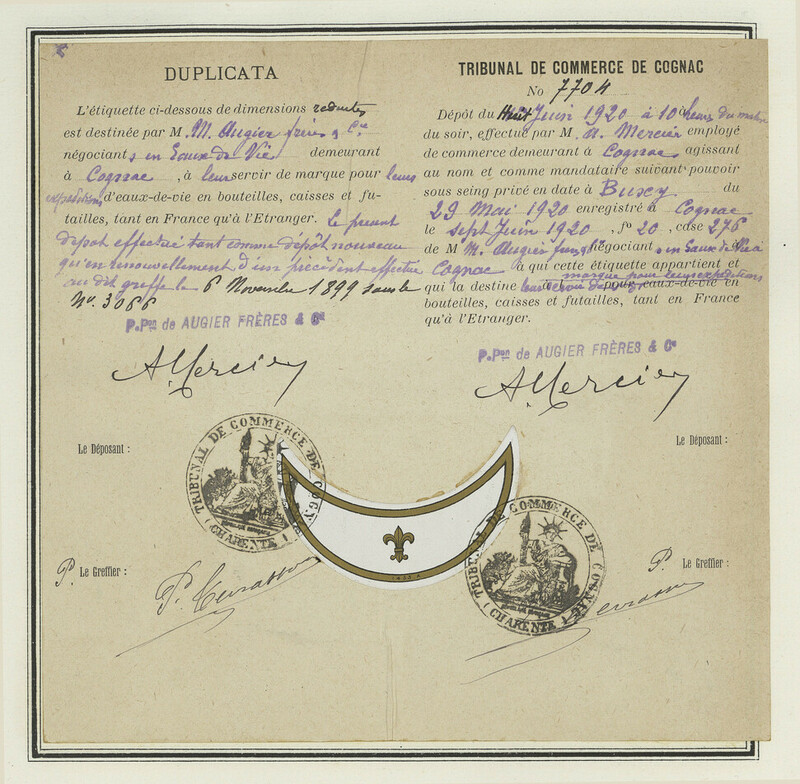 DUPLICATA
L'étiquette ci-dessous de dimensions reduites
est destinée par M. M. Augier frères & Cie
négociants en Eaux de Vie demeurant
à Cognac, à leur servir de marque pour leurs
expéditions d'eaux-de-vie en bouteilles, caisses et fu-
tailles, tant en France qu'à l'Etranger. Le présent
dépot effectué tant comme dépôt nouveau
qu'en renouvellement d'un précédent effectué
au dit greffe le 6 Novembre 1899 sous le
No. 3066
P. Pon de AUGIER FRÈRES & Cie
A. Mercier
Le Déposant :
P. Le Greffier :
TRIBUNAL DE COMMERCE DE COGNAC
No 7704
Dépôt du Huit Juin 1920 à 10 heures du matin
du soir, effectué par M. A. Mercier employé
de commerce demeurant à Cognac agissant
au nom et comme mandataire suivant pouvoir
sous seing privé en date à Buxcy du
29 Mai 1920 enregistré à Cognac
le sept Juin 1920, fo 20, case 276
de M. M. Augier frères négociants en Eaux de Vie à
Cognac à qui cette étiquette appartient et
marque pour leurs expéditions
qui la destine à pour eaux-de-vie en
bouteilles, caisses et futailles, tant en France
qu'à l'Etranger.
P. Pon de AUGIER FRÈRES & Cie
A. Mercier
Le Déposant :
P. Le Greffier :
TRIBUNAL DE COMMERCE DE COGNAC
(CHARENTE)
TRIBUNAL DE COMMERCE DE COGNAC
(CHARENTE)